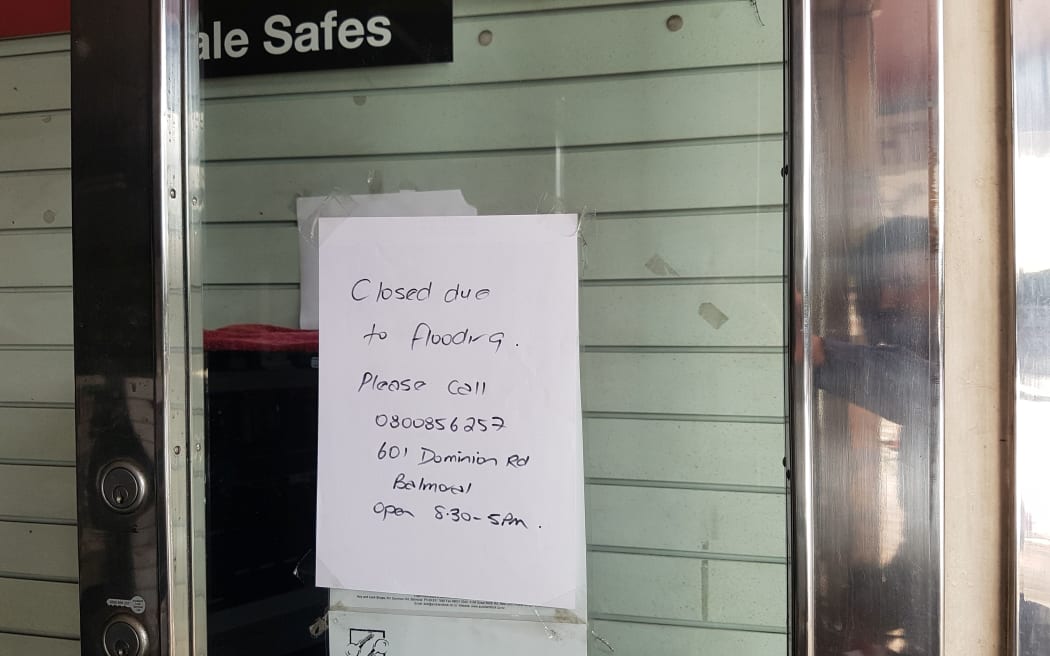 ale Safes
Closed due
to flooding.
Please call
0800856257
601 Dominion Rd
Balmoral
Open 8.30-5pm.